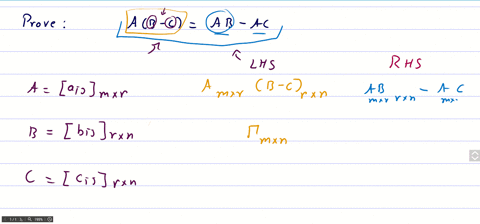 Prove : A(B-C) = AB - AC
LHS RHS
A = [aij]m×r A m×r (B-C) r×n AB m×r r×n - AC m×
B = [bij]r×n Π m×n
C = [cij]r×n